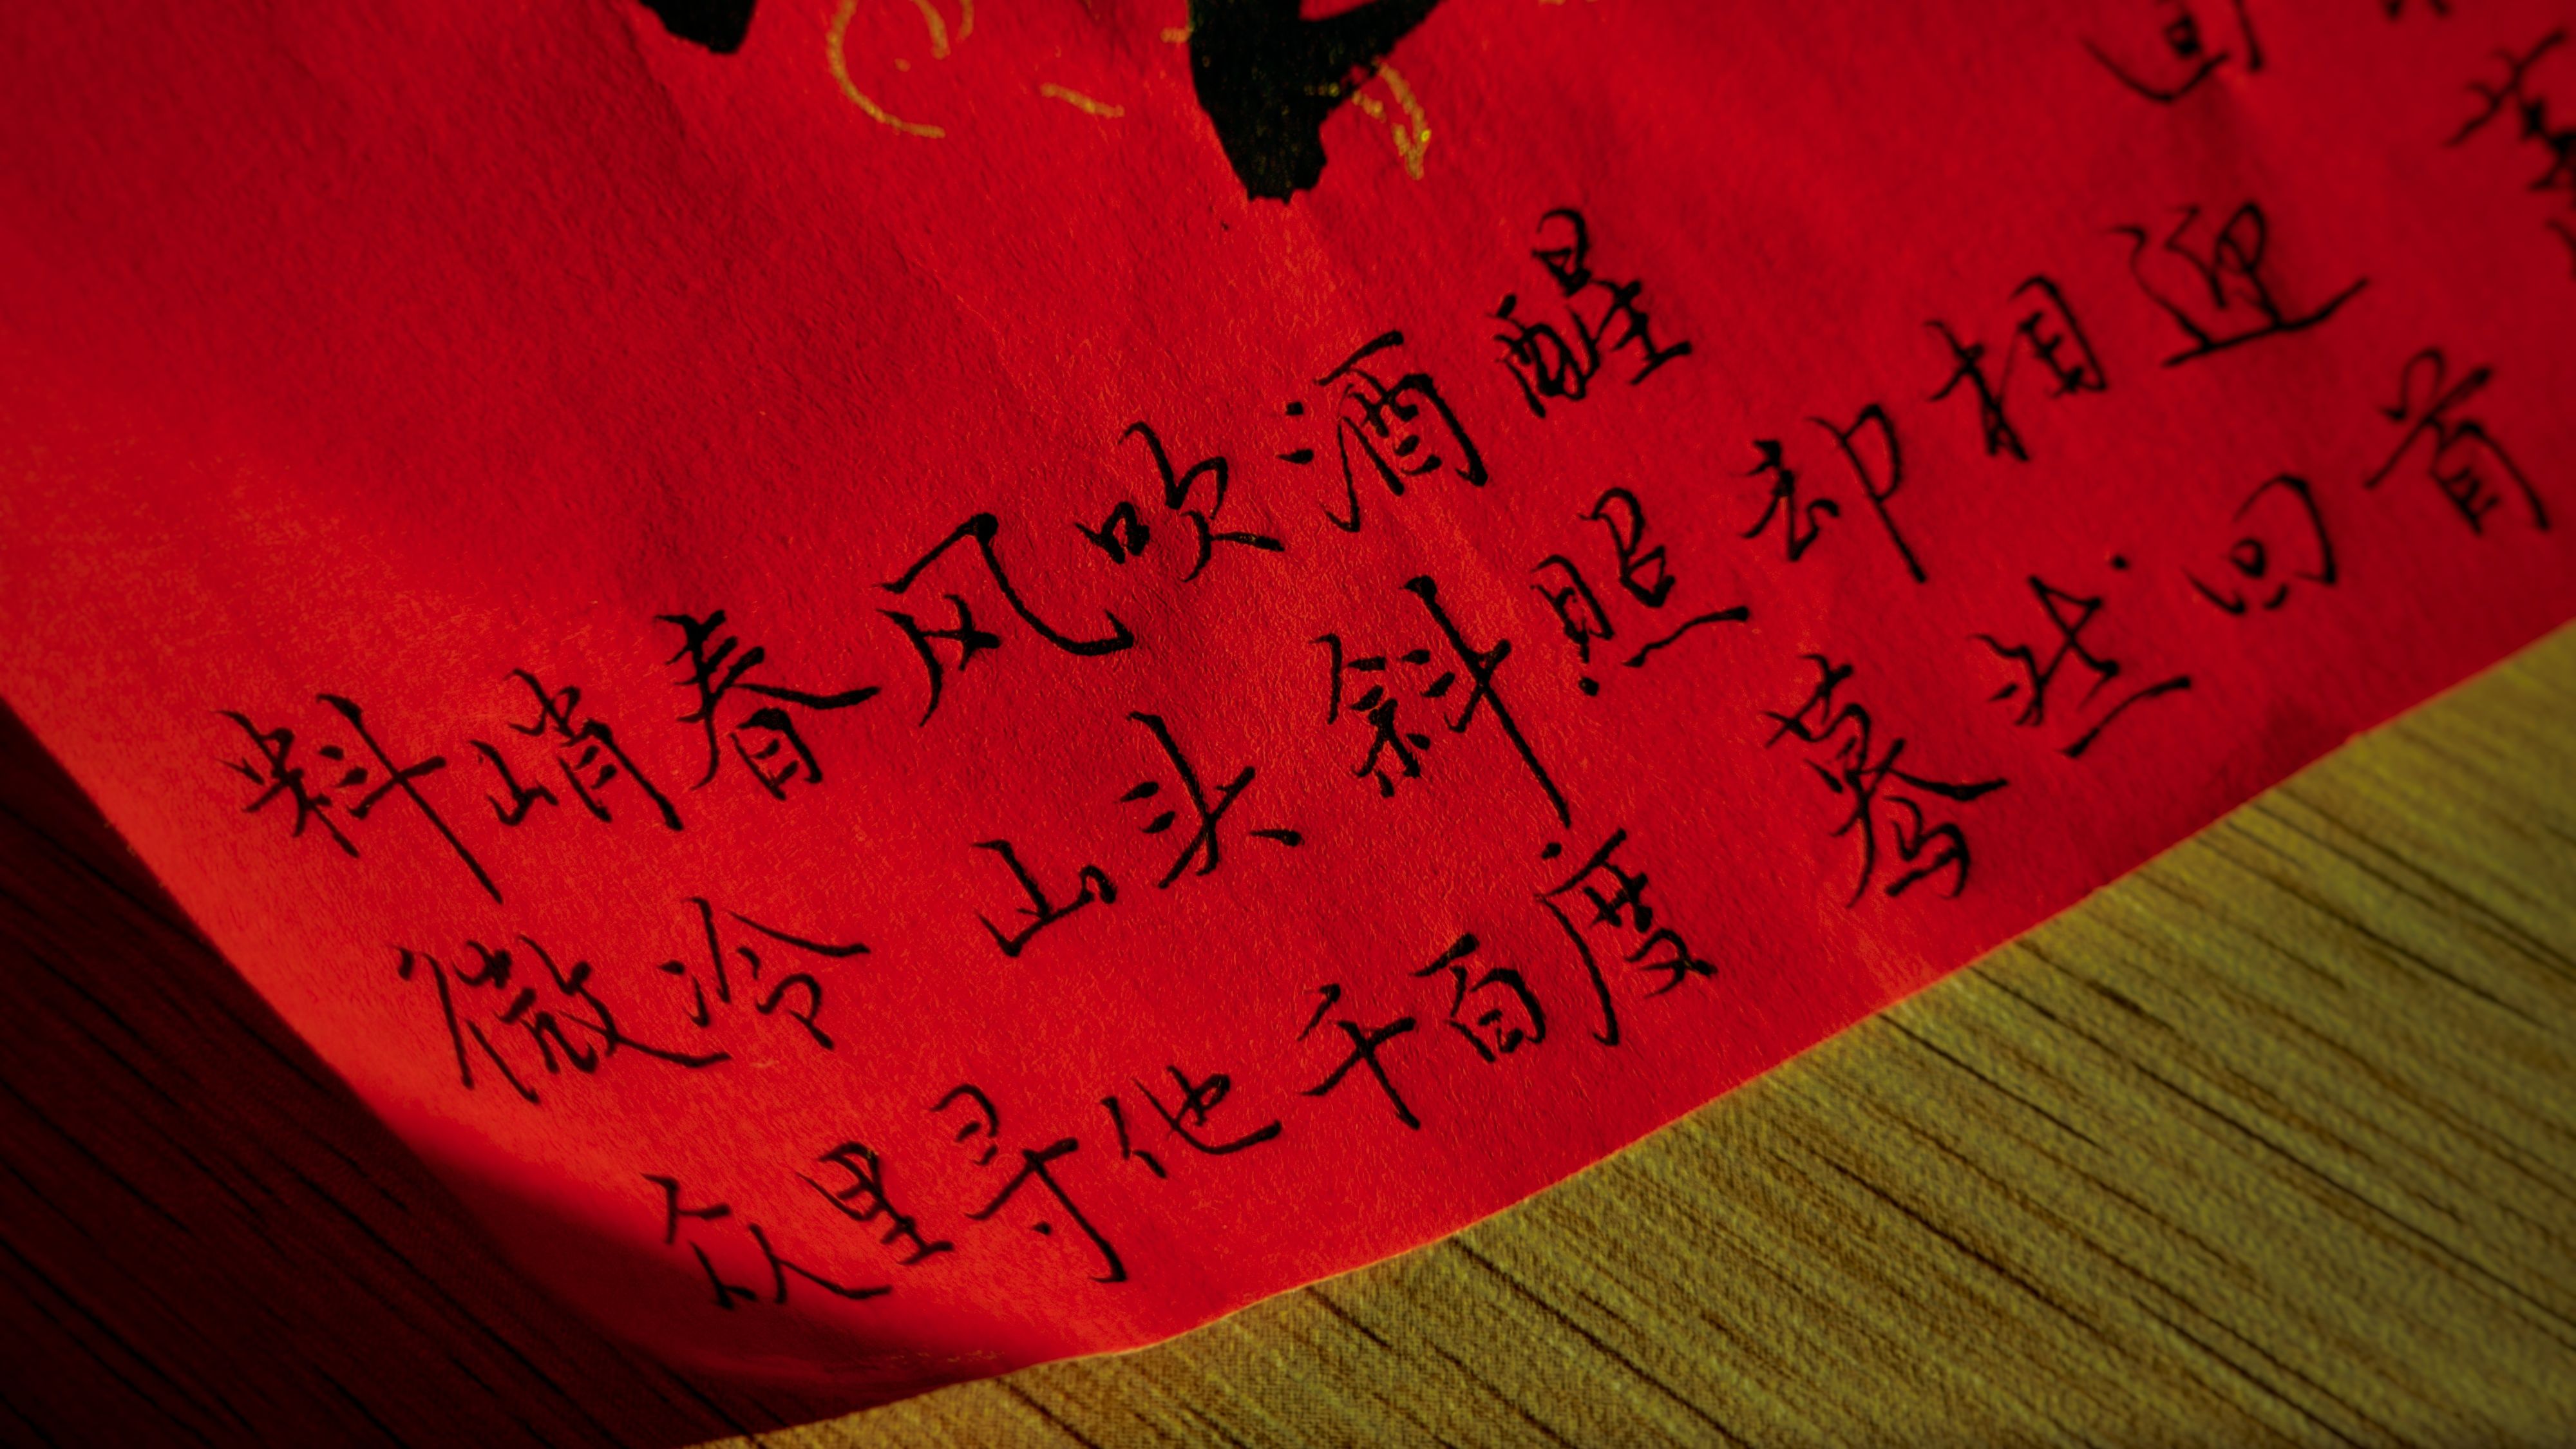 料峭春风吹酒醒
微冷 山头斜照却相迎
众里寻他千百度 蓦然回首